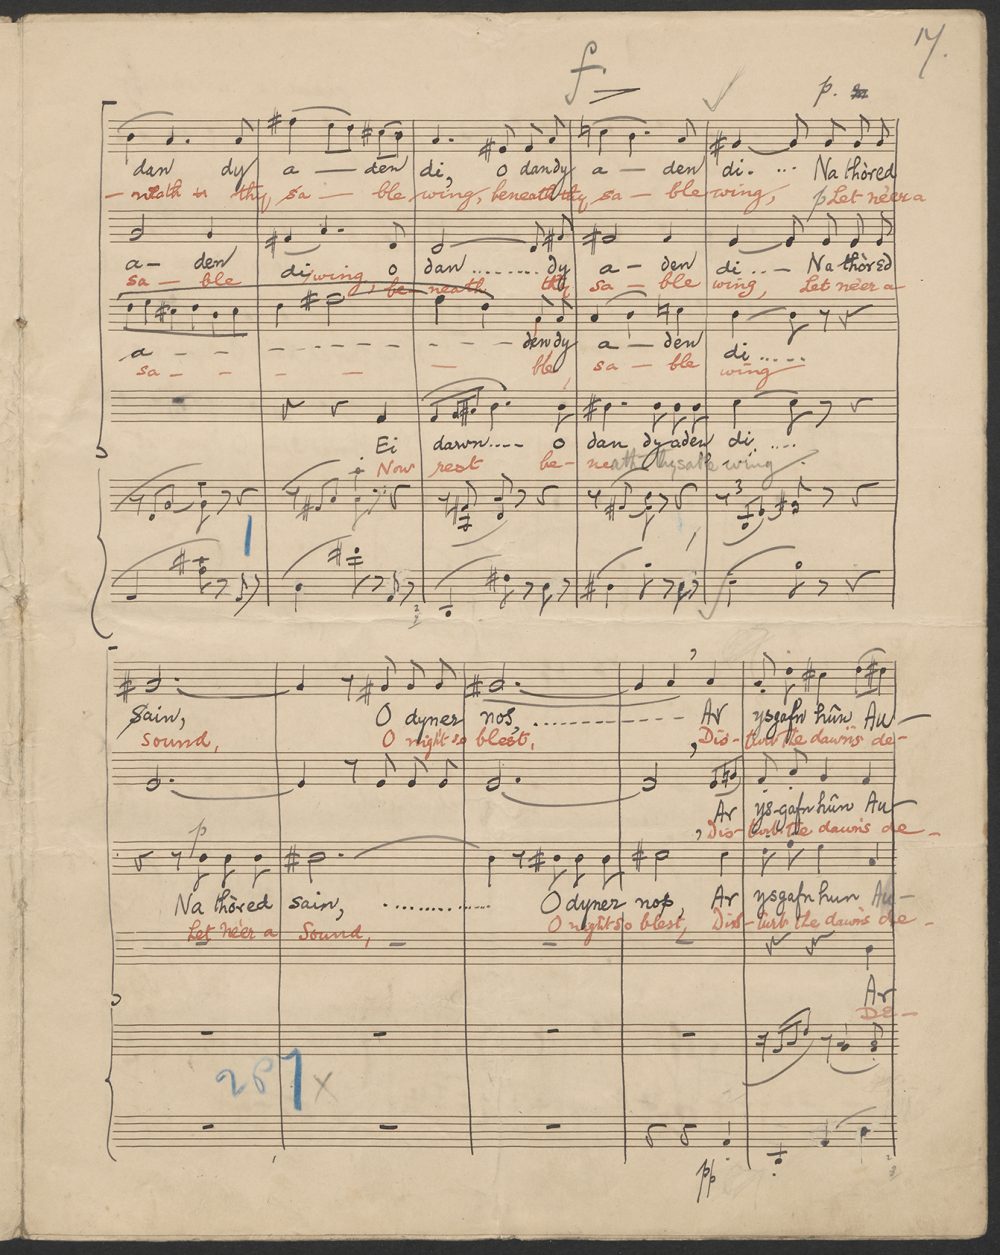 17.
f
p.
dan dy a — den di, O dandy a — den di. ... Na thòred
- neath thy sa — ble wing, beneath thy sa — ble wing, p Let ne'er a
a — den di O dan ......... dy a — den di .. — Na thòred
sa — ble wing, be — neath thy sa — ble wing, Let ne'er a
a - - - - - - - - - dendy a — den di .....
sa - - - - - - ble sa — ble wing
Ei dawn.... O dan dyaden di ....
Now rest be- neath thy sable wing
3
Sain, O dyner nos, ............ Ar ysgafn hûn Au —
Sound, O night so blest, Dis- turb the dawn's de-
Ar ys-gafn hûn Au —
, Dis- turb the dawn's de -
p
Na thòred sain, ............ O dyner nos, Ar ysgafn hun Au-
Let ne'er a Sound, O night so blest, Dis- turb the dawn's de -
Ar
DE -
267 x
pp